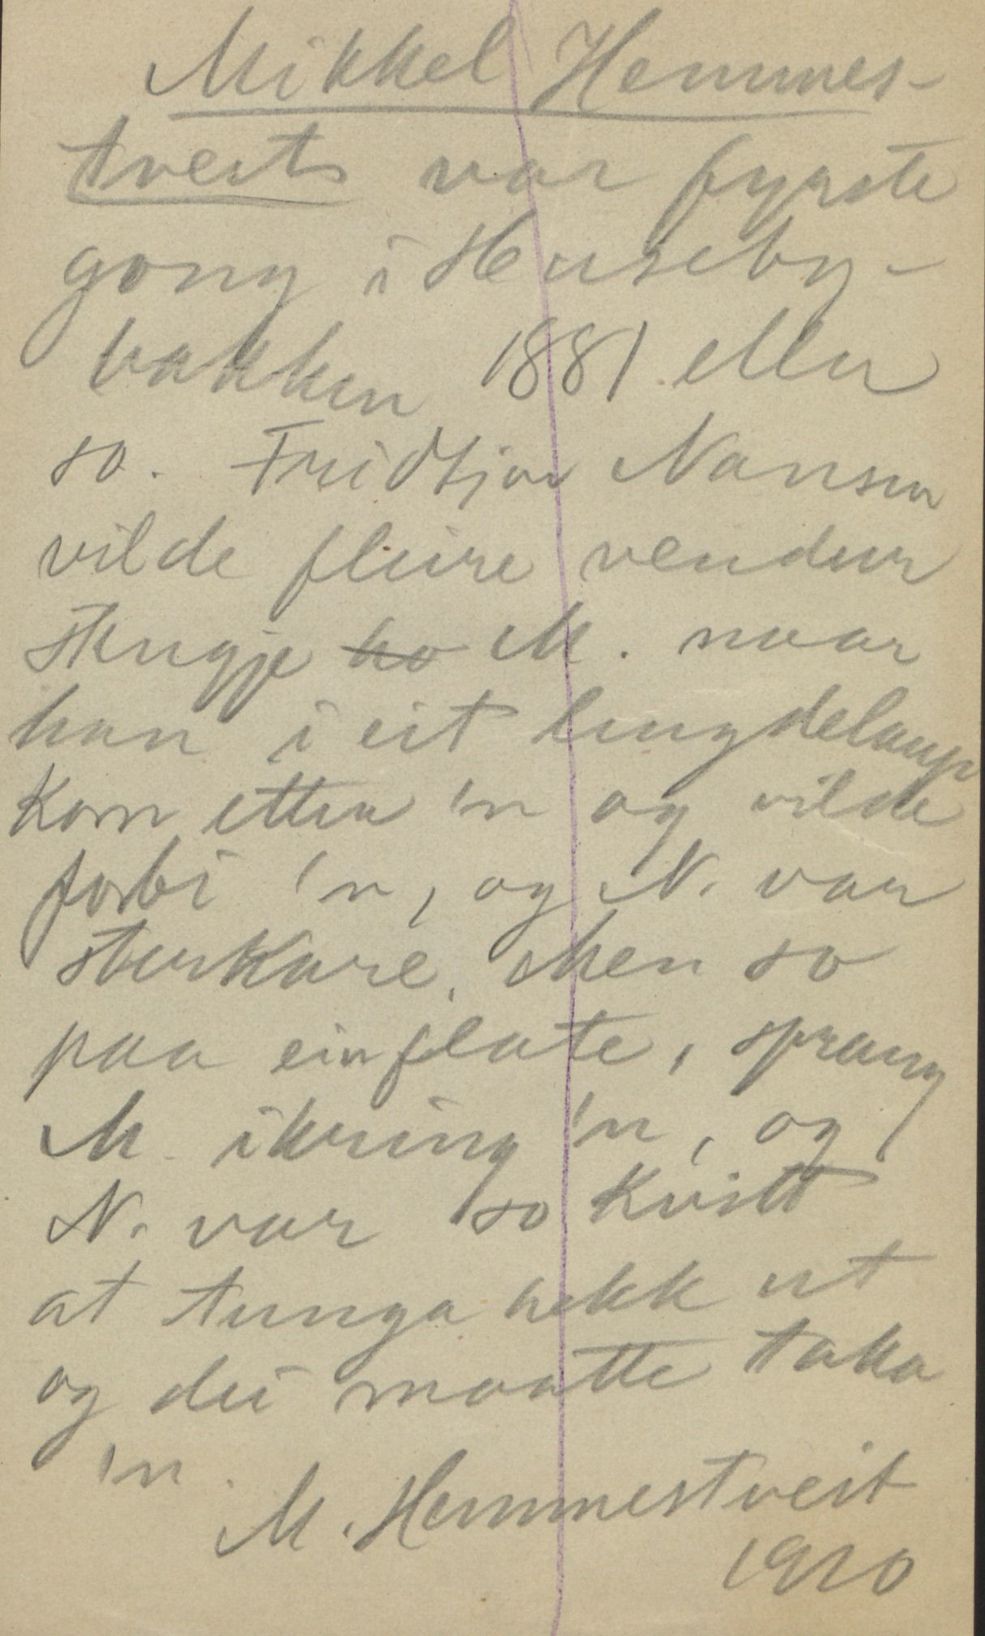 Mikkel Hemmes-
tveit var fyrste
gong i Huseby-
bakken 1881 eller
so. Fridtjov Nansen
vilde fleire vendur
stengje ho M. naar
han i eit lengdelaup
kom etter 'n og vilde
forbi 'n, og N. var
sterkare. Men so
paa ein flate, sprang
M ikring 'n, og
N. var so kvitt
at tunga hekk ut
og dei maatte taka
'n.
M. Hemmestveit
1910